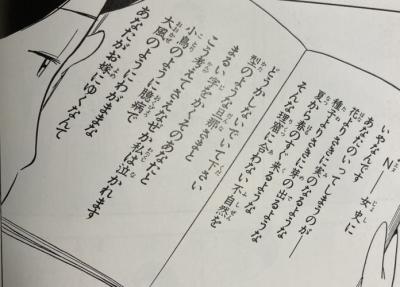 N――女史に
いやなんです
あなたのいってしまうのが――
花よりさきに実のなるような
種子よりさきに芽の出るような
夏から春のすぐ来るような
そんな理窟に合わない不自然を
どうかしないでいて下さい
型のような旦那さまと
まるい字をかくそのあなたと
こう考えてさえなぜか私は泣かれます
小鳥のように臆病で
大風のようにわがままな
あなたがお嫁にゆくなんて